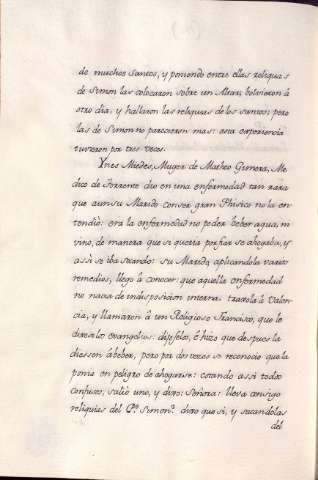 de muchos Santos, y poniendo entre ellas reliquias
de Simon las colocaron sobre un Altar; bolvieron à
otro dia, y hallaron las reliquias de los Santos; pero
las de Simon no parecieron mas: esta experiencia
tuvieron por tres veces.
Ynes Miedes, Muger de Matheo Gimera, Me-
dico de Torrente dio en una enfermedad tan rara
que aunsu Marido conser gran Phisico no la en-
tendió: era la enfermedad no poder beber agua, ni
vino, de manera que si queria porfiar se ahogaba, y
assi se iba secando: su Marido, aplicandola varios
remedios, llegò à conocer: que aquella enfermedad
no nacia de indisposicion interna. traxola à Valen-
cia, y llamaron à un Religioso Francisco, que le
dixese los evangelios: dijoselos, è hizo que despues la
diessen à beber, pero por dos veces se reconocio que la
ponia en peligro de ahogarse: estando assi todos
confusos, saliò uno, y dixo: Señora: lleva consigo
reliquias del P.e Simon? dixo que si, y sacandolas
del